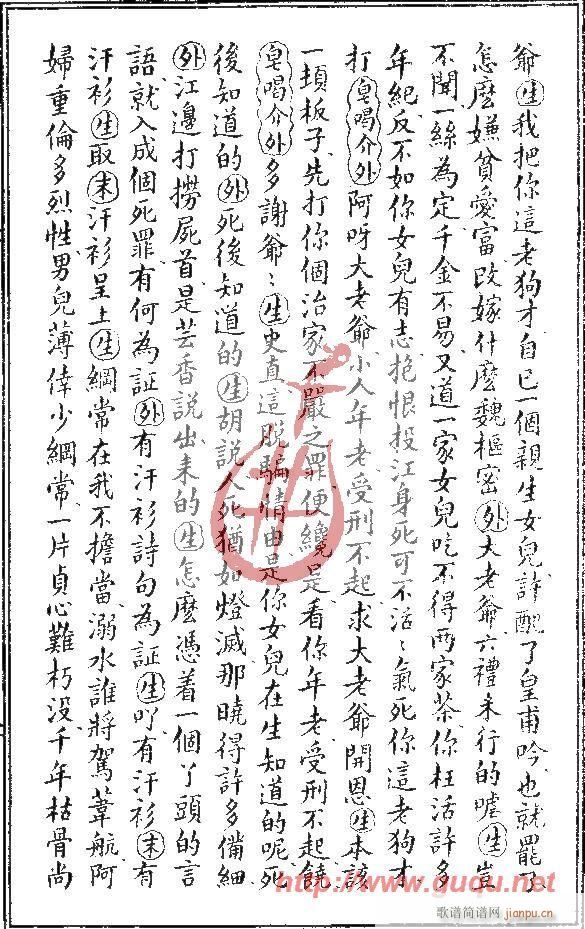 爺㊤生我把你這老狗才自己一個親生女兒許配了皇甫吟也就罷了
怎麽嫌貧愛富改嫁什麽魏樞密外大老爺六禮未行的嘘生豈
不聞一絲為定千金不易又道一家女兒吃不得両家茶你枉活許多
年紀反不如你女兒有志抱恨投江身死可不活〻氣死你這老狗才
打皂喝介外阿呀大老爺小人年老受刑不起求大老爺開恩生本該
一頓板子先打你個治家不嚴之罪便纔是看你年老受刑不起饒
皂喝介外多謝爺〻生史直這脱騙情由是你女兒在生知道的呢死
後知道的外死後知道的生胡説人死猶如燈滅那曉得許多備細
外江邊打撈屍首是芸香説出来的生怎麽憑着一個丫頭的言
語就入成個死罪有何為証外有汗衫詩句為証生吖有汗衫末有
汗衫生取末汗衫呈上生綱常在我不擔當溺水誰將駕葦航阿
婦重倫多烈性男兒薄倖少綱常一片貞心難朽没千年枯骨尚
http://www.guqu.net
歌谱简谱网
jianpu.cn